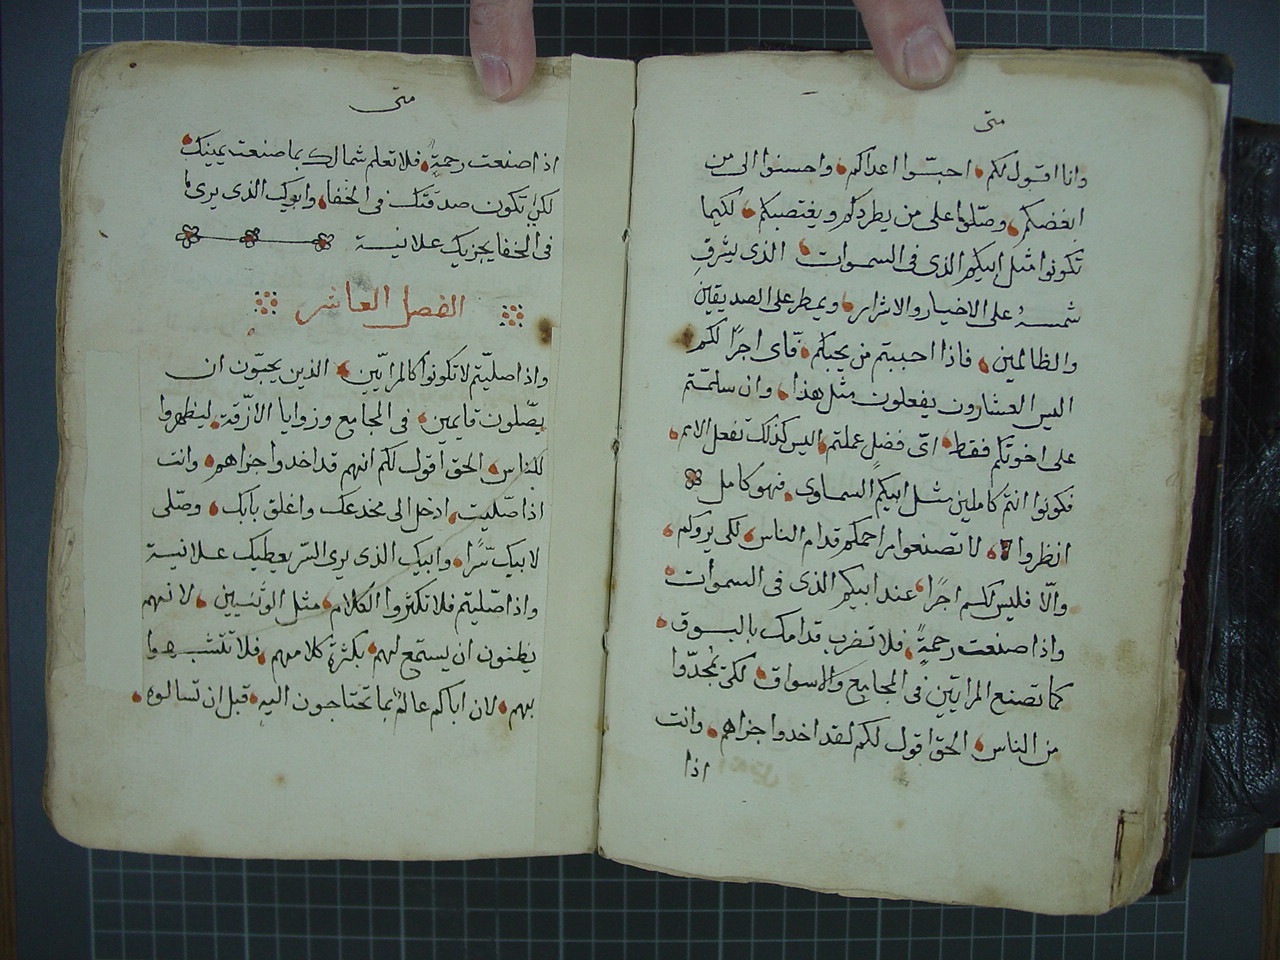 متى
وانا اقول لكم احبّوا اعداكم واحسنوا الى من
ابغضكم وصّلوا على من يطردكم ويغتصبكم لكيما
تكونوا مثل ابيكم الذى فى السموات الذى يشرق
شمسهُ على الاخيار والاشرار ويمطر على الصديقين
والظالمين فاذا احببتم من يحبكم فاى اجرًا لكم
اليس العشارون يفعلون مثل هذا وان سلمتم
على اخوتكم فقط اىّ فضلٍ عملتم اليس كذلك تفعل الامم
فكونوا انتم كاملين مثل ابيكم السماوى فهو كامل
انظروا لا تصنعوا مراحمكم قدام الناس لكى يروكم
والّا فليس لكم اجرًا عند ابيكم الذى فى السموات
واذا صنعت رحمةً فلا تضرب قدامك بالبوق
كما تصنع المرايّين فى المجامع والاسواق لكى يُمجدّوا
من الناس الحق اقول لكم لقد اخدوا جزاهم وانت
اذا
متى
اذا صنعت رحمةً فلا تعلم شمالك بما صنعت يمينك
لكى تكون صدقتك فى الخفا وابوك الذى يرى
فى الخفا يجزيك علانية
الفصل العاشر
واذا صليّتم لا تكونوا كالمرايّين الذين يحبّون ان
يصّلون قايمين فى المجامع وزوايا الازّقة ليظهروا
للناس الحق اقول لكم انهم قد اخدوا جزاهم وانت
اذا صّليت ادخل الى مخدعك واغلق بابك وصّلى
لابيك سّرًا وابيك الذى يرى السّر يعطيك علانية
واذا صّليتم فلا تكثروا الكلام مثل الوثنيين لانهم
يظنون ان يستمع لهم بكثرة كلامهم فلا تتشبهوا
بهم لان اباكم عالمٌ بما تحتاجون اليهِ قبل ان تسالوه